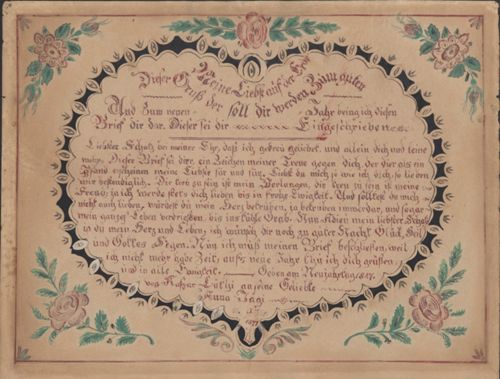 Meine Liebste auf der Erde
Dieser Gruß der soll dir werden Zum guten
Und Zum neuen Jahr bring ich diesen
Brief dir dar. Dieser sei dir Eingeschrieben
Liebster Schatz bei meiner Ehr, daß ich getreu geliebet, und allein dich und keine
mehr. Dieser Brief sei dir ein Zeichen meiner Treue gegen dich, der dir als ein
Pfand meine Liebste für und für. Liebst du mich so wie ich dich, so lieben
wir beständiglich. Dir treu zu sein ist mein Verlangen, dir treu zu sein ist meine
Freud, ja ich werde stets dich lieben bis in frohe Ewigkeit. Und solltest du mich
nicht auch lieben, würdest du mein Herz betrüben, ja betrüben immerdar, und sogar
mein ganzes Leben bis ins kühle Grab. Nun Adieu mein liebster Schatz
du mein Herz und Leben, ich wünsch dir noch zu guter Nacht Glück, Heil
und Gottes Segen. Nun ich muß meinen Brief beschließen, weil
ich nicht mehr Zeit, aufs neue Jahr thu ich dich grüßen
und in alle Ewigkeit. Geben am Neujahrstag
von Kaspar an seine Geliebte
Anna